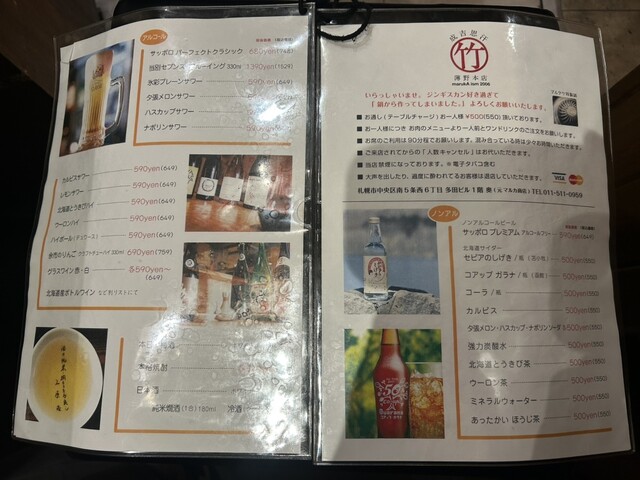 アルコール
サッポロ パーフェクトクラシック 680yen(748)
当別セブンス 330ml 1390yen(1529)
氷彩プレーンサワー
夕張メロンサワー
ハスカップサワー
ナポリンサワー
カルピスサワー 590yen(649)
レモンサワー 590yen(649)
北海道とうきびハイ 590yen(649)
ウーロンハイ 590yen(649)
ハイボール 590yen(649)
余市のりんご 330ml 690yen(759)
グラスワイン 赤・白 各590yen～
(649)
北海道産ボトルワイン など別リストにて
本格焼酎
日本酒
純米燗酒(1合)180ml 冷酒
成吉思汗
竹
薄野本店
marukA ism 2006
いらっしゃいませ、ジンギスカン好き過ぎて
「鍋から作ってしまいました。」よろしくお願いいたします。
■ お通し(テーブルチャージ)お一人様 ¥500(550)頂いております。
■ お一人様につき お肉のメニューより一人前とワンドリンクのご注文をお願いします。
■ お席のご利用は90分程でお願いします。混み合っている時は少々お時間いただきます。
■ ご来店されてからの「人数キャンセル」はお代いただきます。
■ 当店禁煙になっております。※電子タバコ含む
■ 大声を出したり、過度に酔われてるお客様は退店していただきます。
VISA MasterCard
札幌市中央区南5条西6丁目 多田ビル1階 奥 TEL.011-511-0959
ノンアル
ノンアルコールビール
サッポロ プレミアム アルコールフリー 590yen(649)
北海道サイダー
セピアのしずく/瓶 500yen(550)
コアップ ガラナ/瓶 500yen(550)
コーラ/瓶 500yen(550)
カルピス 500yen(550)
夕張メロン・ハスカップ・ナポリンソーダ 500yen(550)
強力炭酸水 500yen(550)
北海道とうきび茶 500yen(550)
ウーロン茶 500yen(550)
ミネラルウォーター 500yen(550)
あったかい ほうじ茶 500yen(550)
Guarana